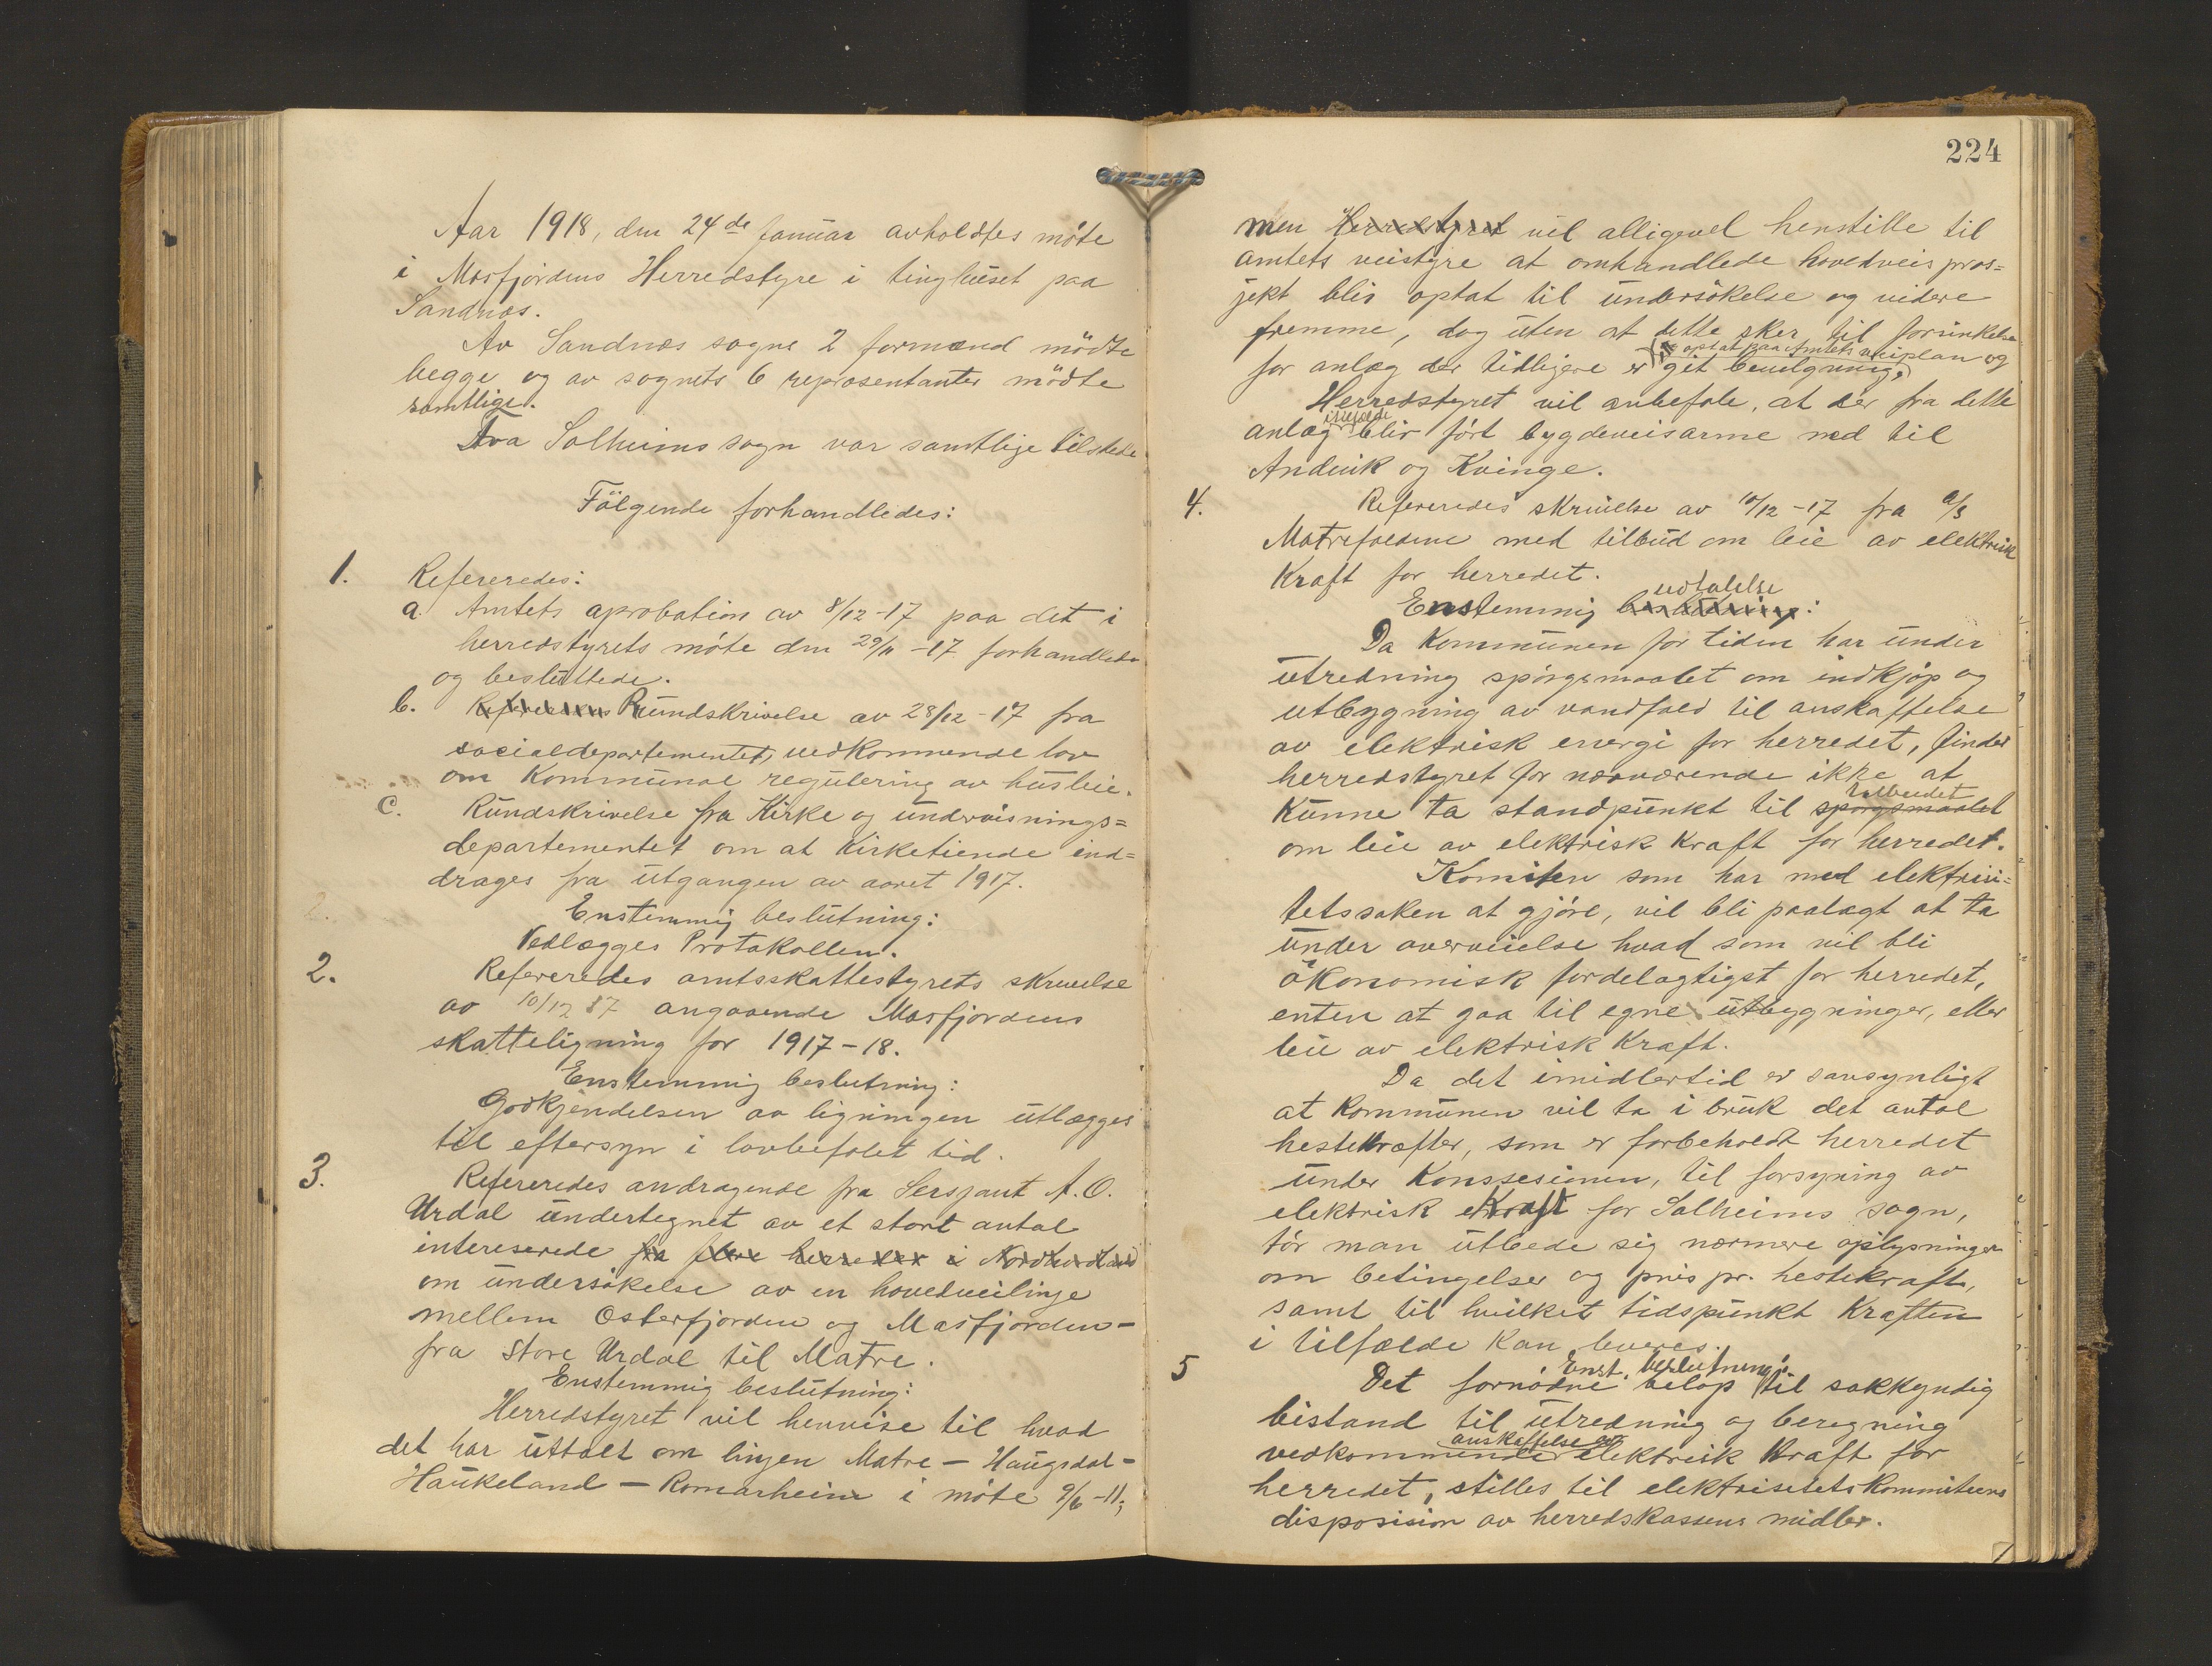 Aar 1918, den 24de Januar avholdtes møte
i Masfjordens Herredstyre i tinghuset paa
Sandnæs.
Av Sandnæs sogns 2 formænd mødte
begge og av sognets 6 repræsentanter mødte
samtlige.
Fra Solheims sogn var samtlige tilstede
Følgende forhandledes:
1. Refereredes:
a. Amtets aprobation av 8/12-17 paa det i
herredstyrets møte den 29/11-17 forhandlede
og besluttede.
b. Refereredes Rundskrivelse av 28/12-17 fra
socialdepartementet, vedkommende lov
om Kommunal regulering av husleie.
c. Rundskrivelse fra Kirke og undervisnings=
departementet om at Kirketiende ind=
drages fra utgangen av aaret 1917.
Enstemmig beslutning:
Vedlægges Protokollen.
2. Refereredes amtsskattestyrets skrivelse
av 10/12 17 angaaende Masfjordens
skatteligning for 1917-18.
Enstemmig beslutning:
Godkjendelsen av ligningen utlægges
til eftersyn i lovbefalet tid.
3. Refereredes andragende fra Sersjant A. O.
Urdal undertegnet av et stort antal
intereserede fra flere herreder i Nordhordland
om undersøkelse av en hovedveilinje
mellem Osterfjorden og Masfjorden -
fra Store Urdal til Matre.
Enstemmig beslutning:
Herredstyret vil henvise til hvad
det har uttalt om linjen Matre - Haugsdal -
Haukeland - Romarheim i møte 9/6-11;
224
men Herredstyret vil alligevel henstille til
amtets veistyre at omhandlede hovedveispros=
jekt blir optat til undersøkelse og videre
fremme, dog uten at dette sker til forsinkelse
optat paa Amtets veiplan og
for anlæg der tidligere er git bevilgning.
Herredstyret vil anbefale, at der fra dette
isåfald
anlæg blir ført bygdeveisarme ned til
Andvik og Kvinge.
4. Refereredes skrivelse av 10/12-17 fra a/s
Matrefaldene med tilbud om leie av elektrisk
Kraft for herredet.
udtalelse
Enstemmig beslutning:
Da Kommunen for tiden har under
utredning spørgsmaalet om indkjøp og
utbygning av vandfald til anskaffelse
av elektrisk energi for herredet, finder
herredstyret for nærværende ikke at
tilbudet
kunne ta standpunkt til spørgsmaalet
om leie av elektrisk Kraft for herredet.
Komiteen som har med elektrisi=
tetssaken at gjøre, vil bli paalagt at ta
under overveielse hvad som vil bli
økonomisk fordelagtigst for herredet,
enten at gaa til egne utbygninger, eller
leie av elektrisk Kraft.
Da det imidlertid er sansynligt
at Kommunen vil ta i bruk det antal
hestekræfter, som er forbeholdt herredet
under Konssesionen, til forsyning av
elektrisk Kraft for Solheims sogn,
tør man utbede sig nærmere oplysninger
om betingelser og pris pr. hestekraft,
samt til hvilket tidspunkt Kraften
i tilfælde kan leveres.
Enst. beslutning:
5 Det fornødne beløp til sakkyndig
bistand til utredning og beregning
anskaffelse av
vedkommende elektrisk Kraft for
herredet, stilles til elektrisitetskommiteens
disposision av herredskassens midler.